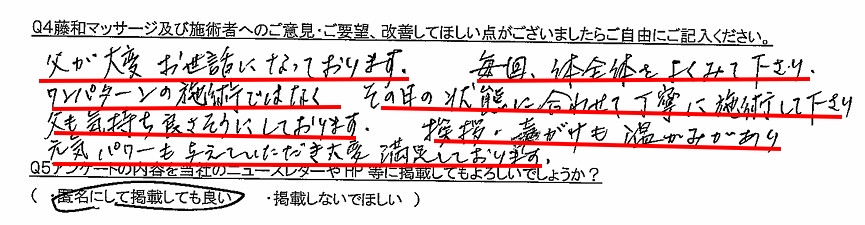 Q4藤和マッサージ及び施術者へのご意見・ご要望、改善してほしい点がございましたらご自由にご記入ください。
父が大変お世話になっております。 毎回、体全体をよくみて下さり、
ワンパターンの施術ではなく その日の状態に合わせて丁寧に施術して下さり
父も気持ち良さそうにしております。 挨拶・声がけも温かみがあり
元気パワーも与えていただき大変満足しております。
Q5アンケートの内容を当社のニュースレターやHP等に掲載してもよろしいでしょうか？
( ・匿名にして掲載しても良い ・掲載しないでほしい )